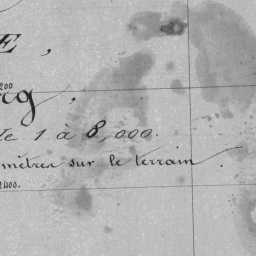 E,
200
rg.
de 1 à 8,000.
mètres sur le terrain.
2400.